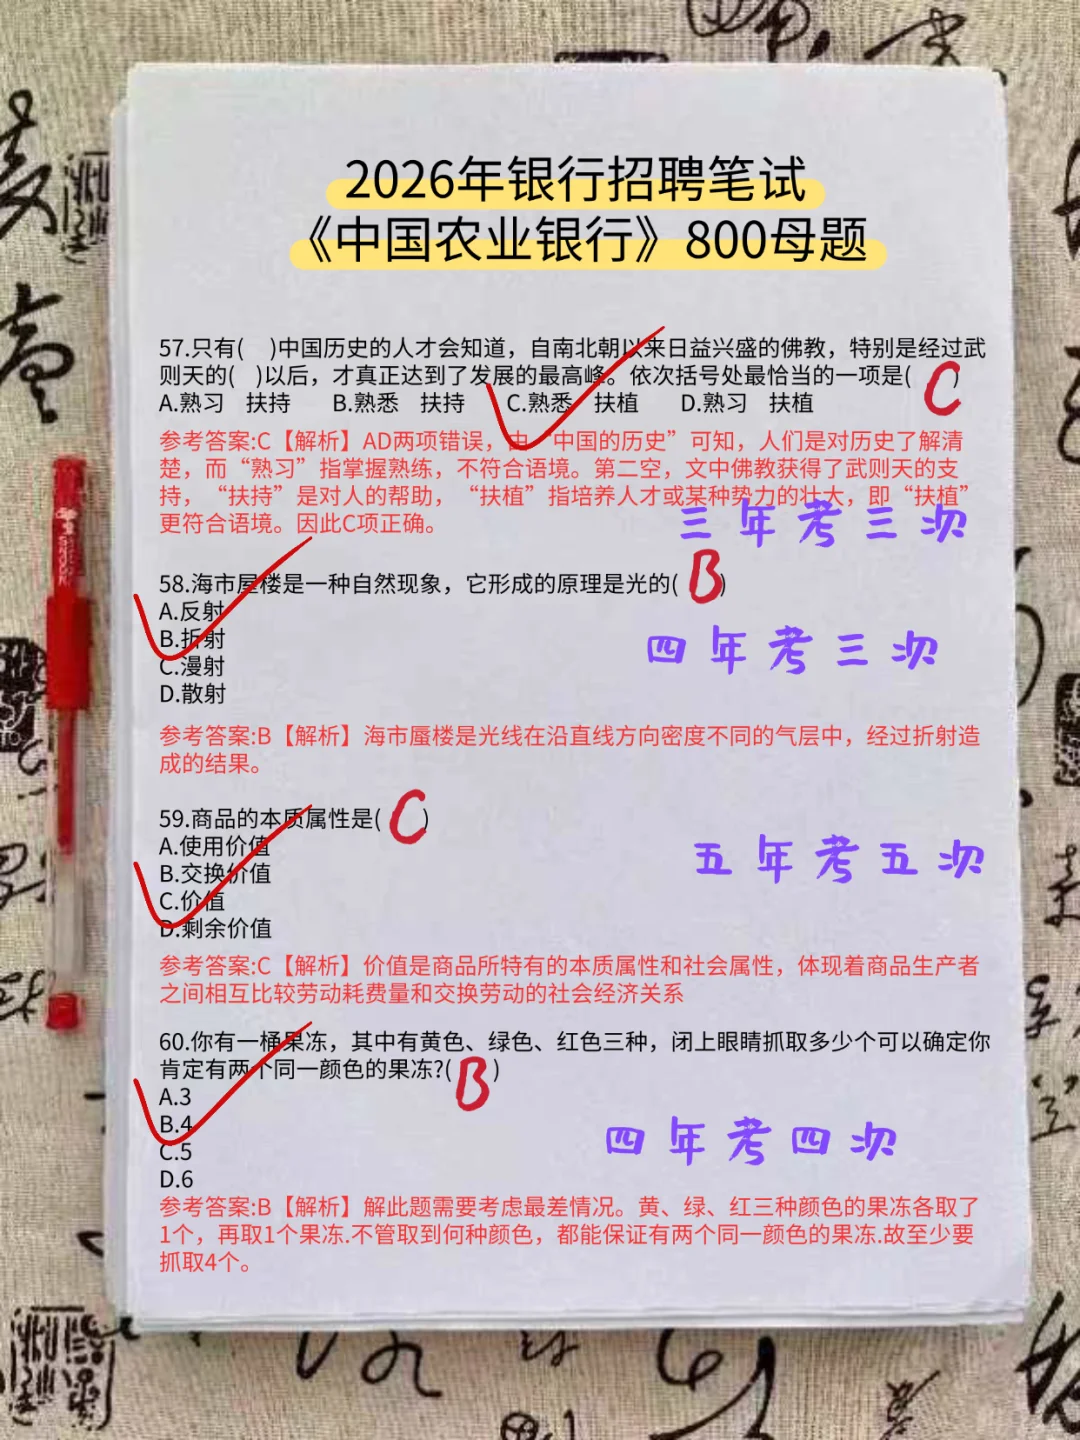 2026年银行招聘笔试
《中国农业银行》800母题
57.只有(　)中国历史的人才会知道，自南北朝以来日益兴盛的佛教，特别是经过武
则天的(　)以后，才真正达到了发展的最高峰。依次括号处最恰当的一项是( C )
A.熟习　扶持　B.熟悉　扶持　C.熟悉　扶植　D.熟习　扶植
参考答案:C【解析】AD两项错误，由“中国的历史”可知，人们是对历史了解清
楚，而“熟习”指掌握熟练，不符合语境。第二空，文中佛教获得了武则天的支
持，“扶持”是对人的帮助，“扶植”指培养人才或某种势力的壮大，即“扶植”
更符合语境。因此C项正确。
三年考三次
58.海市屋楼是一种自然现象，它形成的原理是光的( B )
A.反射
B.折射
四年考三次
C.漫射
D.散射
参考答案:B【解析】海市蜃楼是光线在沿直线方向密度不同的气层中，经过折射造
成的结果。
59.商品的本质属性是( C )
A.使用价值
五年考五次
B.交换价值
C.价值
D.剩余价值
参考答案:C【解析】价值是商品所特有的本质属性和社会属性，体现着商品生产者
之间相互比较劳动耗费量和交换劳动的社会经济关系
60.你有一桶果冻，其中有黄色、绿色、红色三种，闭上眼睛抓取多少个可以确定你
肯定有两个同一颜色的果冻?( B )
A.3
B.4
四年考四次
C.5
D.6
参考答案:B【解析】解此题需要考虑最差情况。黄、绿、红三种颜色的果冻各取了
1个，再取1个果冻.不管取到何种颜色，都能保证有两个同一颜色的果冻.故至少要
抓取4个。